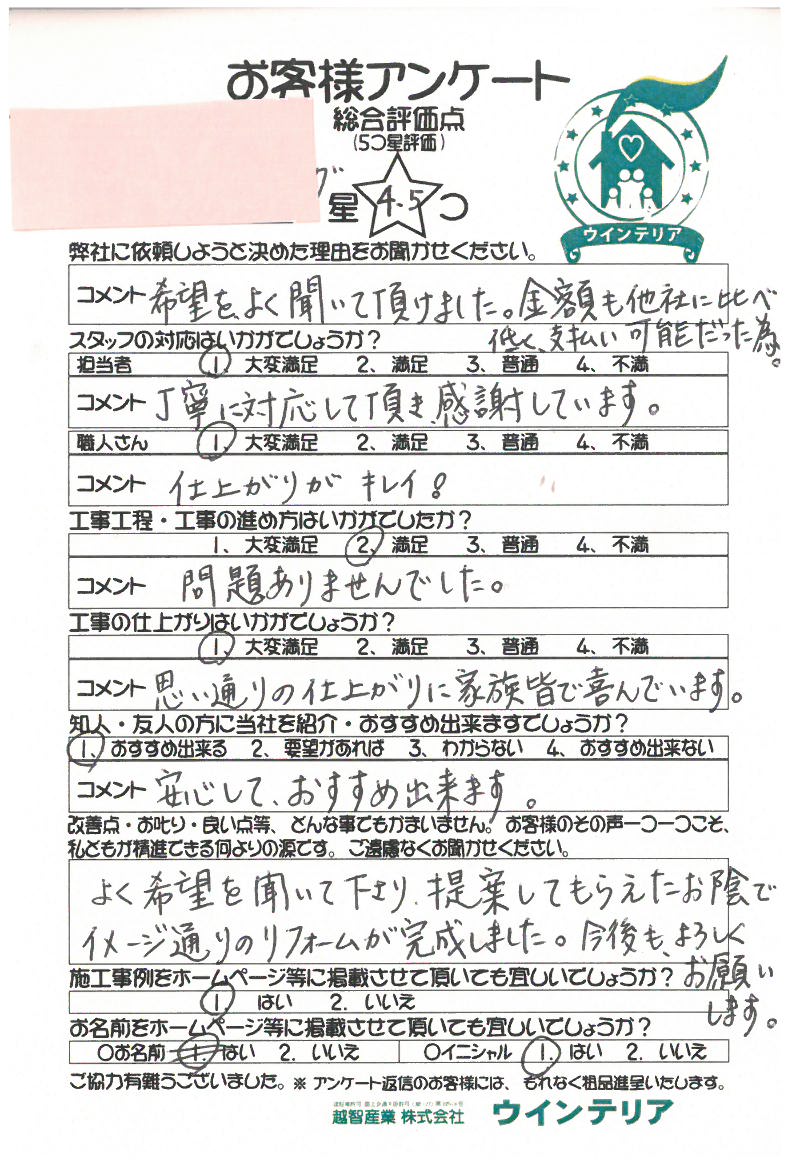 お客様アンケート
総合評価点
(5つ星評価)
星4.5つ
ウインテリア
弊社に依頼しようと決めた理由をお聞かせください。
コメント 希望を、よく聞いて頂けました。金額も他社に比べ
低く、支払い可能だった為。
スタッフの対応はいかがでしょうか?
担当者 1、大変満足 2、満足 3、普通 4、不満
コメント 丁寧に対応して頂き、感謝しています。
職人さん 1、大変満足 2、満足 3、普通 4、不満
コメント 仕上がりが キレイ!
工事工程・工事の進め方はいかがでしたか?
1、大変満足 2、満足 3、普通 4、不満
コメント 問題ありませんでした。
工事の仕上がりはいかがでしょうか?
1、大変満足 2、満足 3、普通 4、不満
コメント 思い通りの仕上がりに家族皆で喜んでいます。
知人・友人の方に当社を紹介・おすすめ出来ますでしょうか?
1、おすすめ出来る 2、要望があれば 3、わからない 4、おすすめ出来ない
コメント 安心して、おすすめ出来ます。
改善点・お叱り・良い点等、どんな事でもかまいません。お客様のその声一つ一つこそ、
私どもが精進できる何よりの源です。ご遠慮なくお聞かせください。
よく希望を聞いて下さり、提案してもらえたお陰で
イメージ通りのリフォームが完成しました。今後も、よろしく
お願い
します。
施工事例をホームページ等に掲載させて頂いても宜しいでしょうか?
1. はい 2. いいえ
お名前をホームページ等に掲載させて頂いても宜しいでしょうか?
〇お名前 1. はい 2. いいえ 〇イニシャル 1. はい 2. いいえ
ご協力有難うございました。※ アンケート返信のお客様には、もれなく粗品進呈いたします。
越智産業 株式会社 ウインテリア